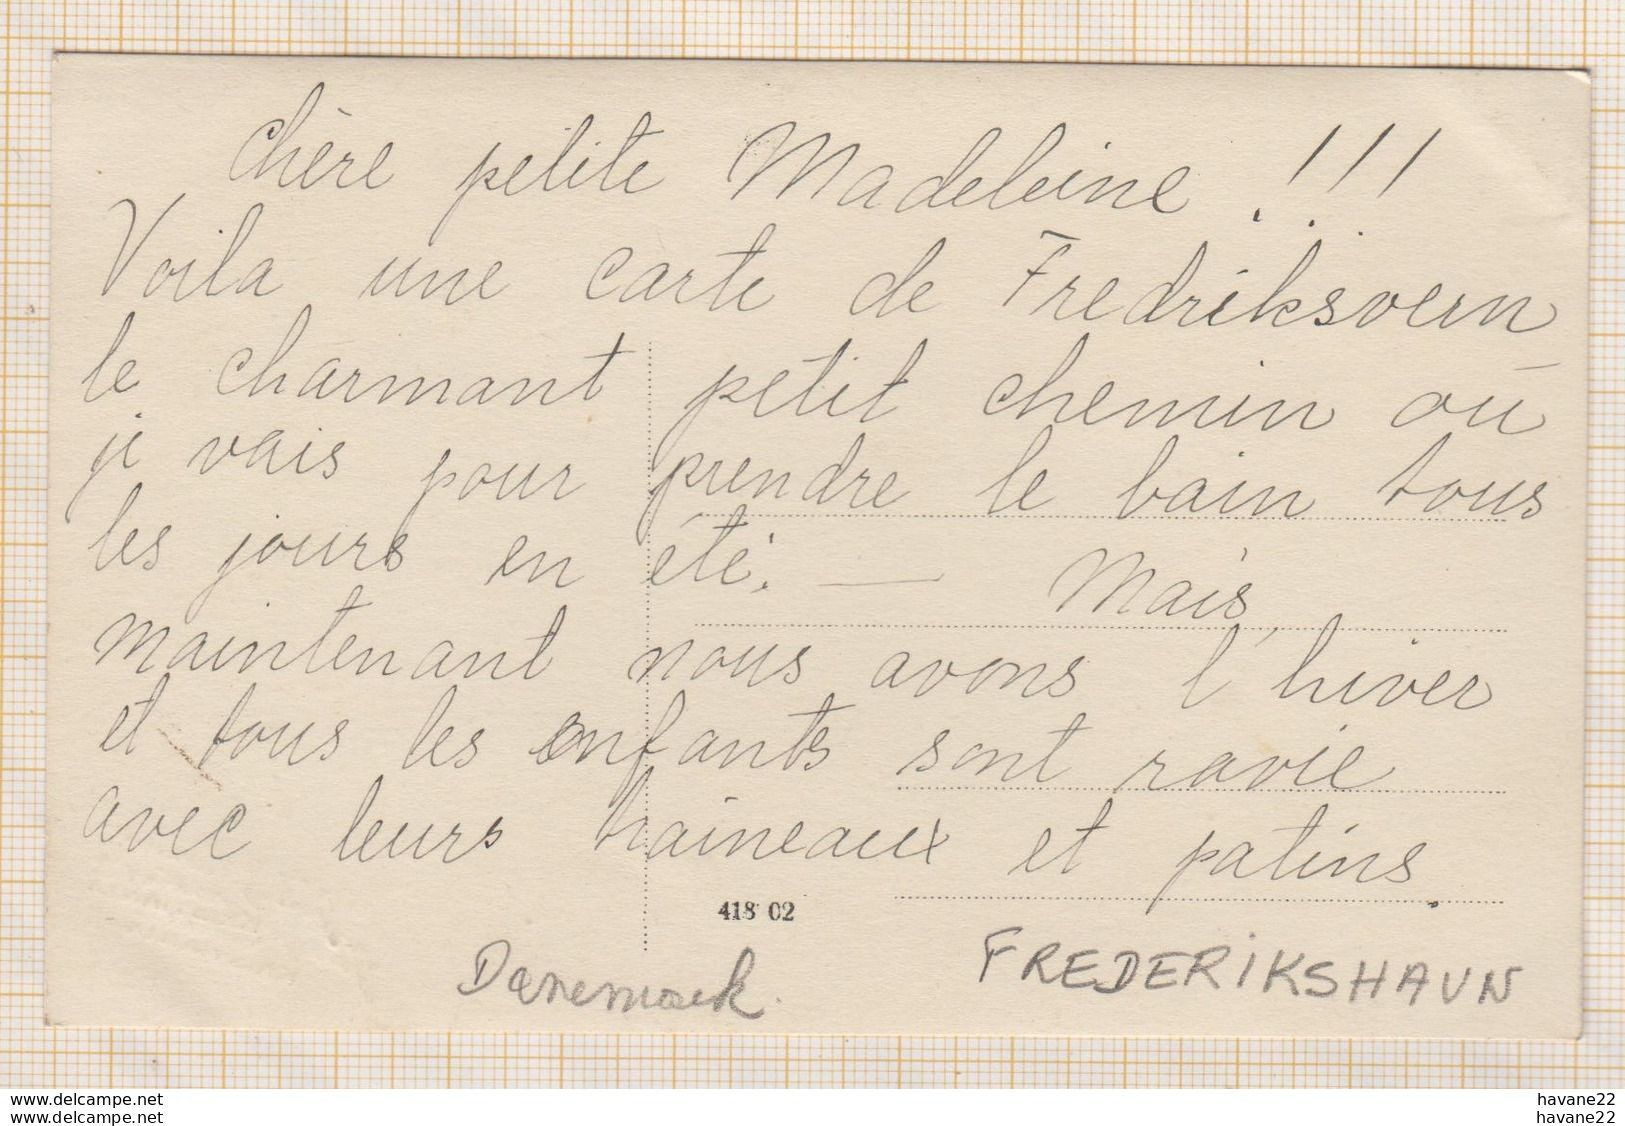 Chère petite Madeleine !!!
Voila une carte de Fredriksvern
le charmant petit chemin où
je vais pour prendre le bain tous
les jours en été. — Mais,
maintenant nous avons l'hiver
et tous les enfants sont ravie
avec leurs traineaux et patins.
418 02
Danemark
FREDERIKSHAVN
www.delcampe.net
www.delcampe.net
havane22
havane22